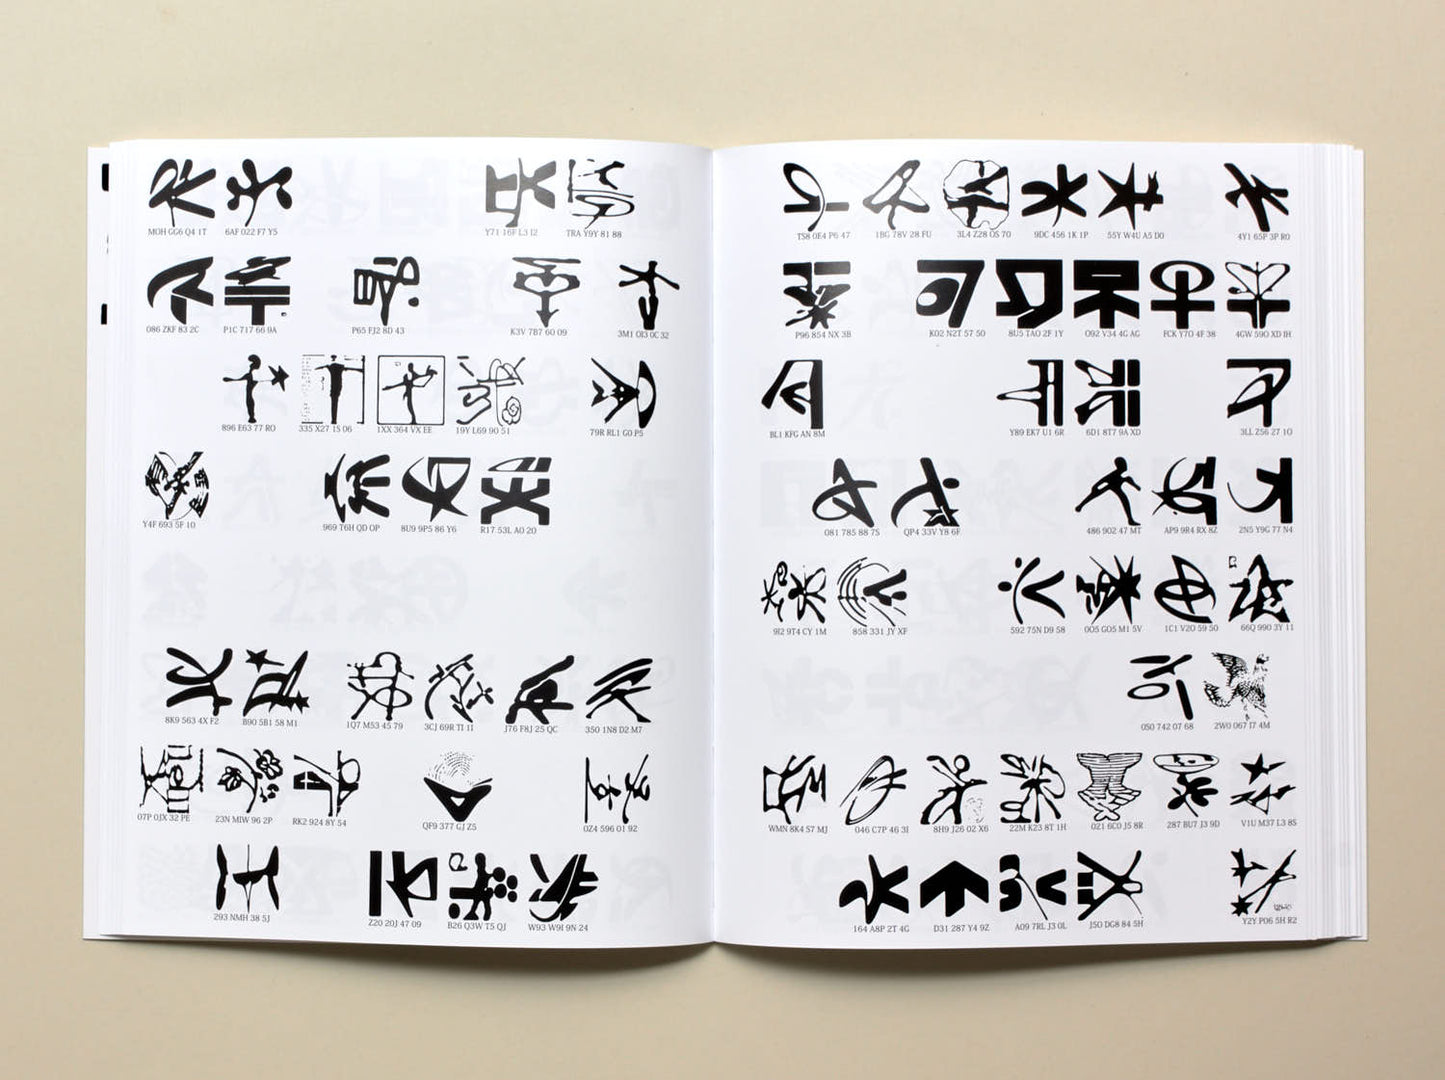 MOH GG6 Q4 1T 6AF 022 F7 Y5 Y71 16F L3 I2 TRA Y9Y 81 88
086 ZKF 83 2C P1C 717 66 9A P65 FJ2 8D 43 K3V 7B7 60 09 3M1 OI3 0C 32
896 E63 77 RO 335 X27 1S 06 1XX 364 VX EE 19Y L69 90 51 79R RL1 G0 P5
Y4F 693 5F 10 969 T6H QD OP 8U9 9P5 86 Y6 R17 53L A0 20
8K9 563 4X F2 B90 5B1 58 M1 1Q7 M53 45 79 3CJ 69R TI 1I J76 F8J 25 QC 350 1N8 D2 M7
07P 0JX 32 PE 23N MIW 96 2P RK2 924 8Y 54 QF9 377 GJ Z5 0Z4 596 01 92
293 NMH 38 5J Z20 20J 47 09 B26 Q3W T5 QJ W93 W9I 9N 24
TS8 0E4 P6 47 1BG 78V 28 FU 3L4 Z28 OS 70 9DC 456 1K 1P 55Y W4U A5 D0 4Y1 65F 3P R0
P96 854 NX 3B K02 N2T 57 50 8U5 TAO 2F 1Y O92 V34 4G AG FCK Y7O 4F 38 4GW 59O XD IH
BL1 KFG AN 8M Y89 EK7 U1 6R 6D1 8T7 9A XD 3LL Z56 27 1O
081 785 88 7S QP4 33V Y8 6F 486 902 47 MT AP9 9R4 RX 8Z 2N5 Y9G 77 N4
9I2 9T4 CY 1M 858 331 JY XF 592 75N D9 58 0O5 GO5 M1 5V 1C1 V2O 59 50 66Q 990 3Y 11
0S0 742 07 68 2W0 067 I7 4M
WMN 8K4 57 MJ 046 C7P 46 3I 8H9 J26 02 X6 22M K23 8T 1H 021 6CO J5 8R 287 BU7 J3 9D V1U M37 L3 8S
164 A8P 2T 4G D31 287 Y4 9Z A09 7RL J3 0L J5O DG8 84 5H Y2Y P06 5H R2